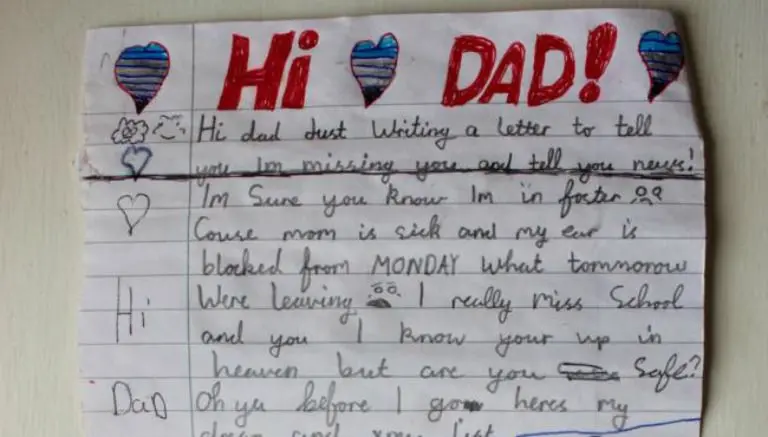 Hi DAD!
Hi dad Just Writing a letter to tell
you Im missing you and tell you news!
Im Sure you know Im in foster
Couse mom is sick and my ear is
blocked from MONDAY What tommorow
Hi
Were leaving I really miss School
and you I know your up in
heaven but are you Safe?
DaD
Oh ya before I go heres my
and xmas list